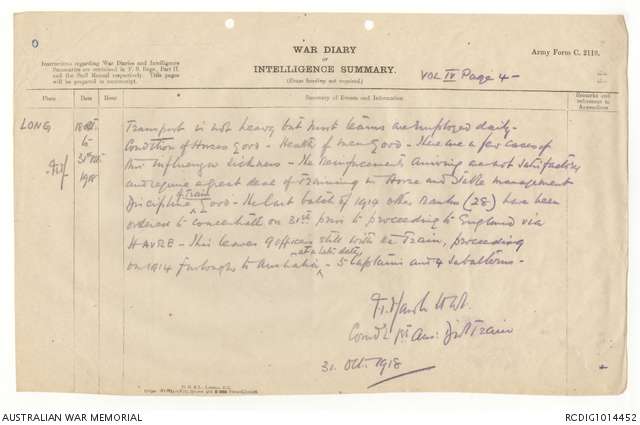 WAR DIARY
or
INTELLIGENCE SUMMARY.
(Erase heading not required.)
Army Form C. 2118.
Instructions regarding War Diaries and Intelligence
Summaries are contained in F. S. Regs., Part II.
and the Staff Manual respectively. Title pages
will be prepared in manuscript.
VOL IV Page 4 -
Place Date Hour Summary of Events and Information Remarks and references to Appendices
LONG 18 Oct. to 31st Oct. 1918
Transport is not heavy but most teams are employed daily -
Condition of Horses Good - Health of men Good - There are a few cases of
this Influenza sickness - The Reinforcements arriving are not satisfactory
and require a great deal of Training in Horse and Stable management
Discipline of Train Good - The last batch of 1914 other Ranks (28) have been
ordered to concentrate on 31st prior to proceeding to England via
HAVRE - This leaves 9 Officers still with the Train, proceeding
on 1914 furloughs to Australia at a later date - 5 Captains and 4 subalterns -
Lt. Col.
Comd'g 1st Aus: Div Train
31. Oct. 1918
AUSTRALIAN WAR MEMORIAL
RCDIG1014452